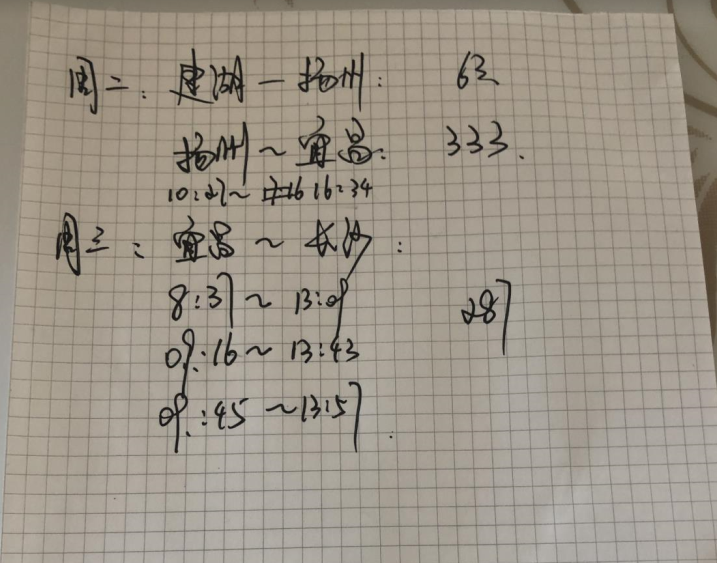 周二: 建湖—扬州: 63
扬州~宜昌: 333.
10:27~ 16:34
周三: 宜昌~长沙:
8:37~13:09 287
09:16~13:43
09:45~13:57.